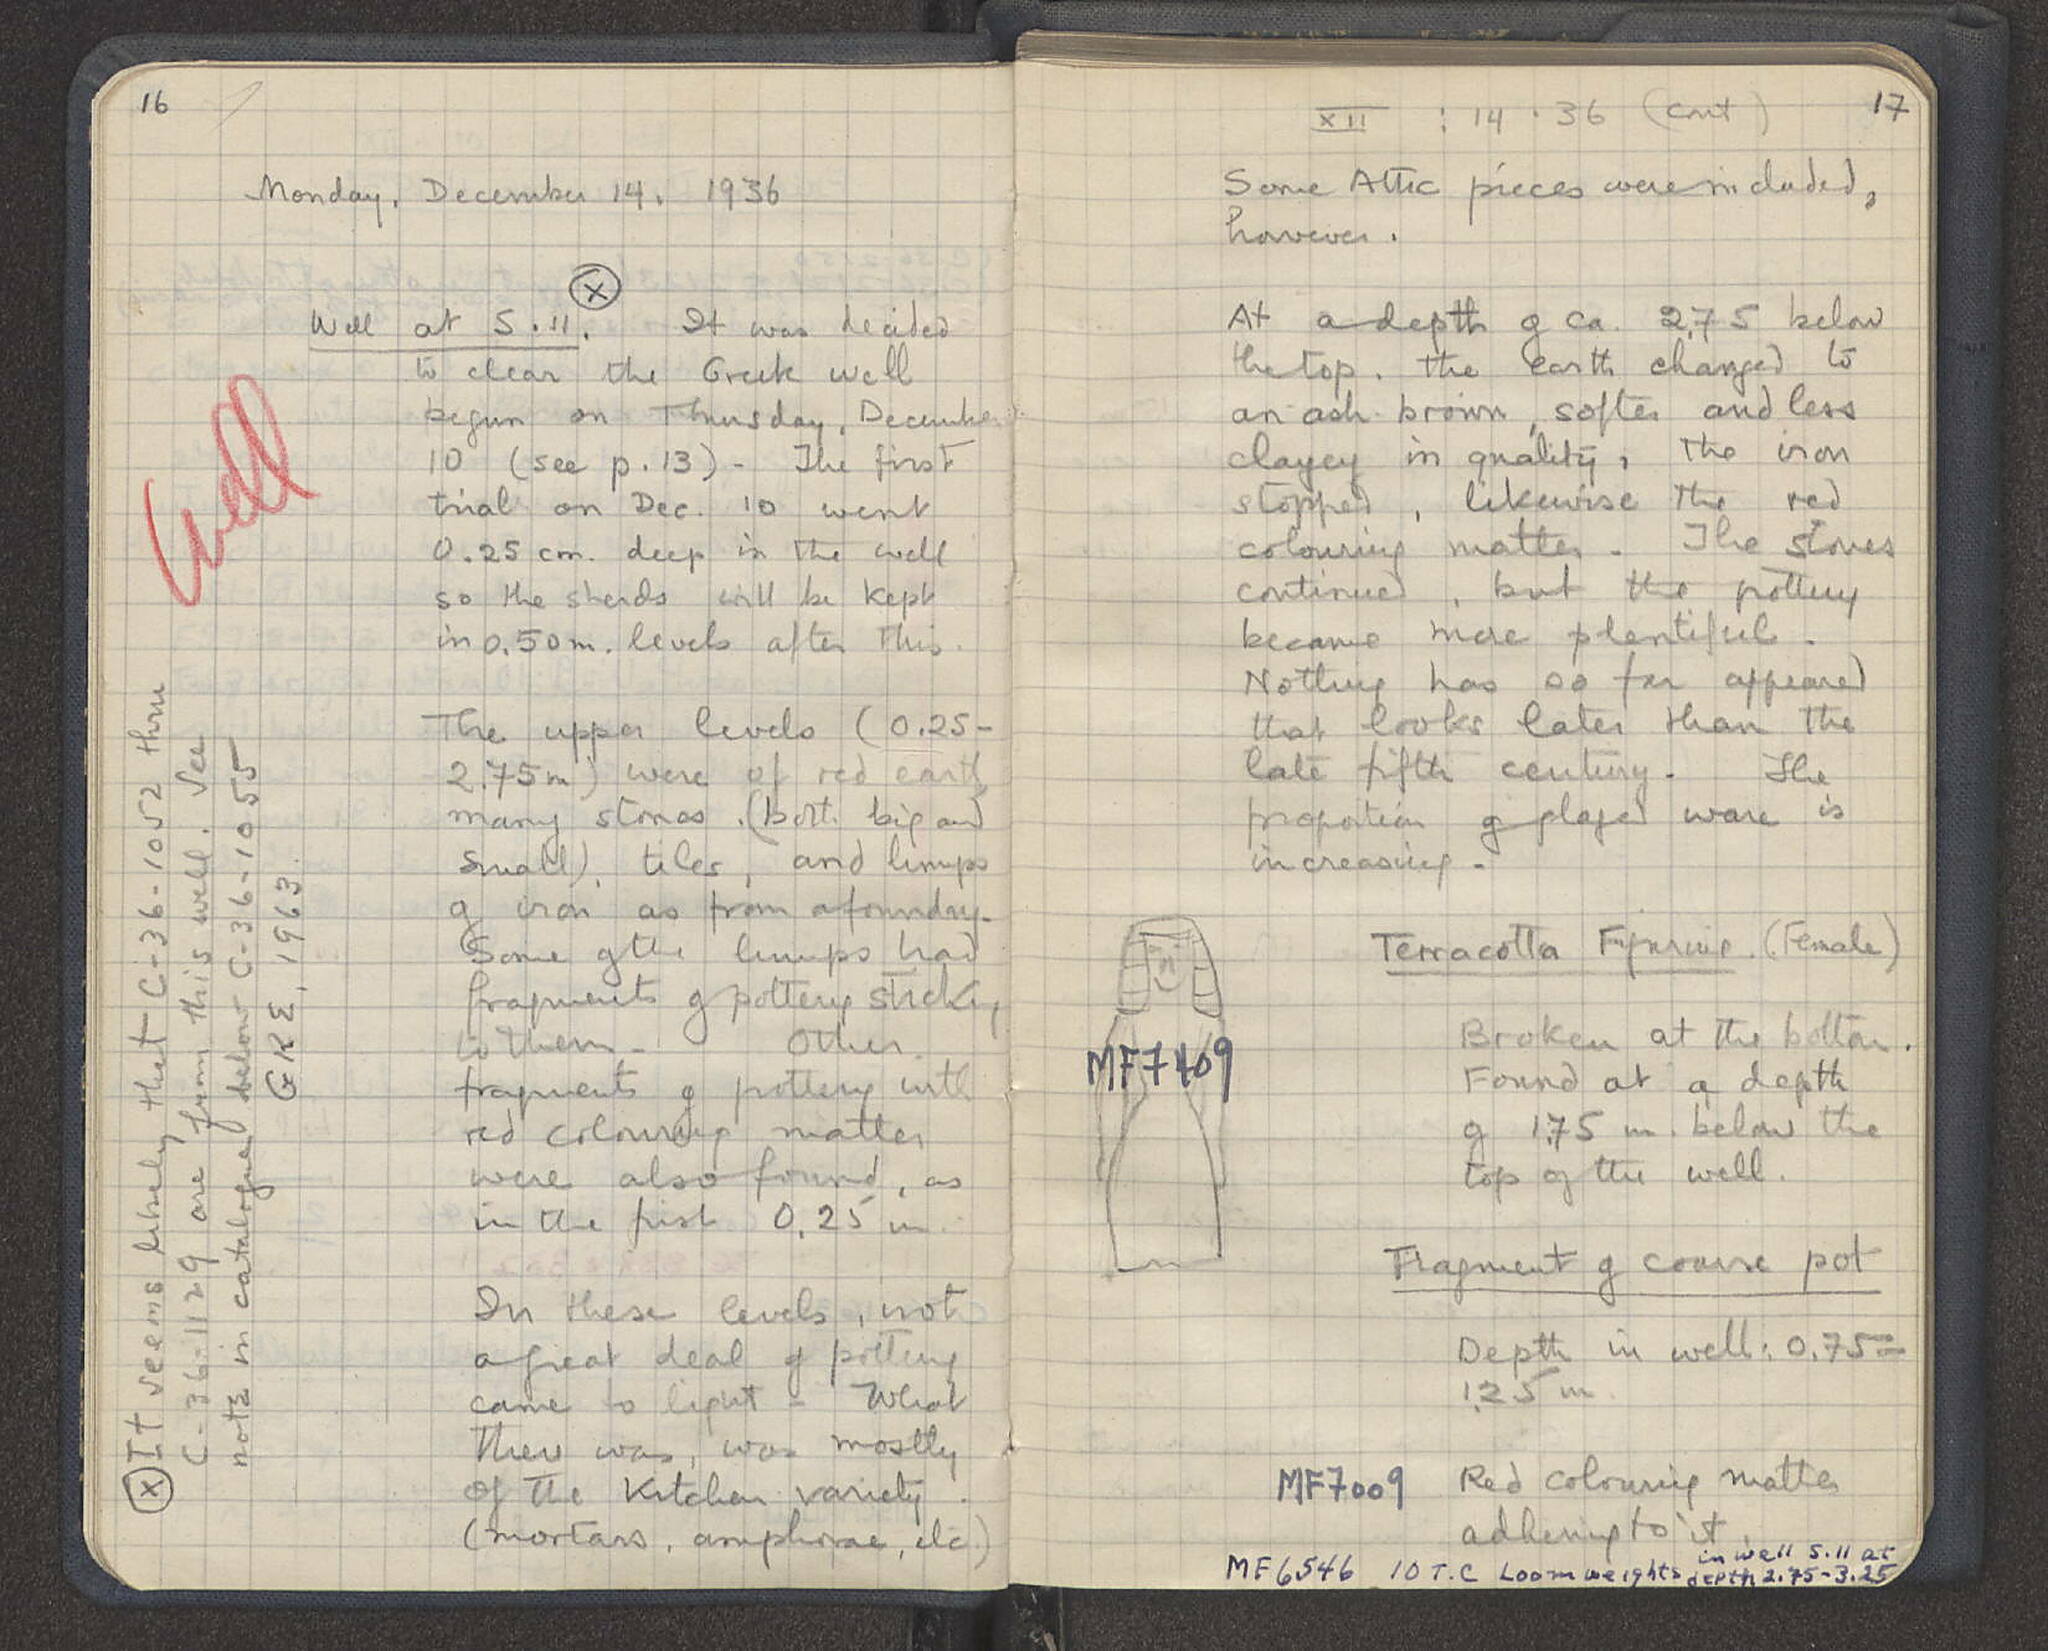 16
Monday, December 14, 1936
ⓧ
Well at S.11. It was decided
to clear the Greek well
begun on Thursday, December
10 (see p. 13) - The first
trial on Dec. 10 went
0.25 cm. deep in the well
so the sherds will be kept
in 0.50 m. levels after this.
Well
The upper levels (0.25-
2.75 m) were of red earth
many stones (both big and
small), tiles, and lumps
of iron as from a foundry.
Some of the lumps had
fragments of pottery sticking
to them - Other
fragments of pottery with
red colouring matter
were also found, as
in the first 0.25 m.
In these levels, not
a great deal of pottery
came to light - What
there was, was mostly
of the Kitchen variety.
(mortars, amphorae, etc.)
ⓧ It seems likely that C-36-1052 thru
C-36-1129 are from this well. See
note in catalogue below C-36-1055
GRE, 1963.
17
XII : 14 . 36 (cont)
Some Attic pieces were included,
however.
At a depth of ca. 2.75 below
the top, the earth changed to
an ash brown, softer and less
clayey in quality, the iron
stopped, likewise the red
colouring matter - The stones
continued, but the pottery
became more plentiful.
Nothing has so far appeared
that looks later than the
late fifth century - The
proportion of glazed ware is
increasing -
Terracotta Figurine. (Female)
MF7409
Broken at the bottom.
Found at a depth
of 1.75 m. below the
top of the well.
Fragment of coarse pot
Depth in well: 0.75 =
1.25 m.
MF7009 Red colouring matter
adhering to it.
MF6546 10 T.C Loomweights in well S.11 at
depth 2.75-3.25